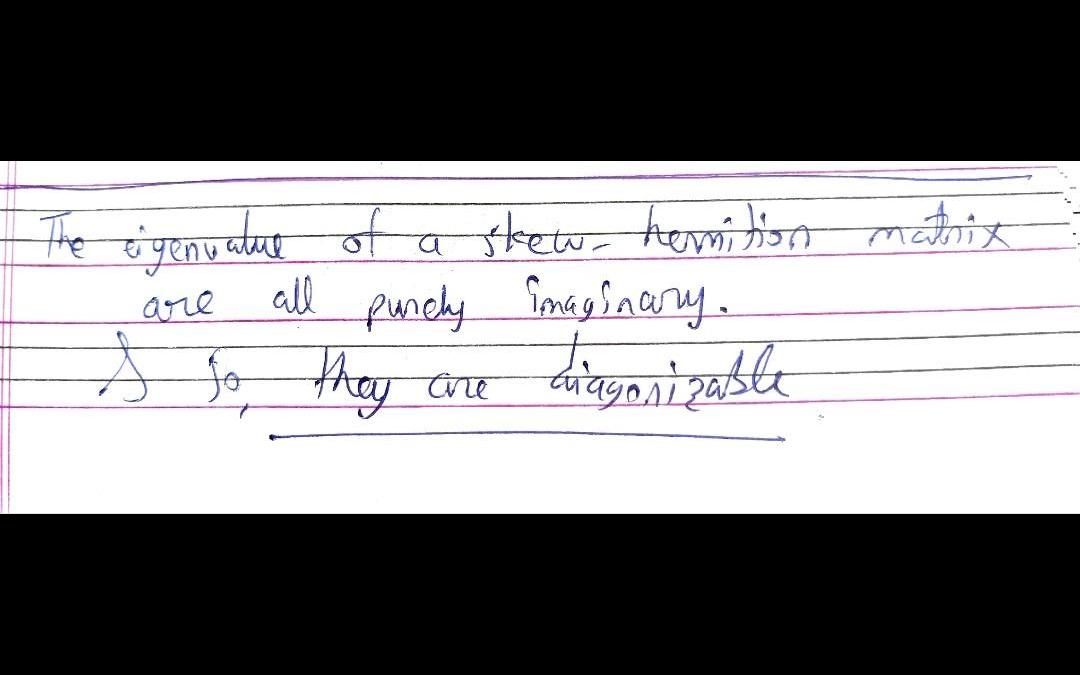 The eigenvalue of a skew- hermition matrix
are all purely imaginary.
So, they are diagonizable